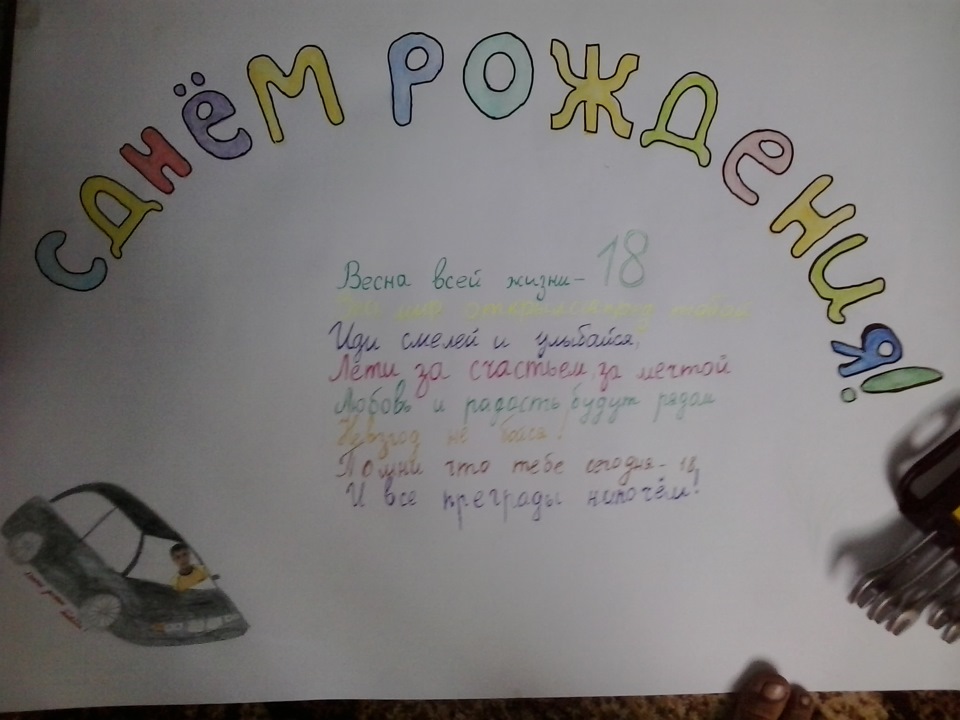 С ДНЁМ РОЖДЕНИЯ!
Весна всей жизни- 18
открыт перед тобой
Иди смелей и улыбайся,
Лети за счастьем, за мечтой
Любовь и радость будут рядом
Невзгод не бойся!
Помни что тебе сегодня- 18,
И все преграды нипочём!